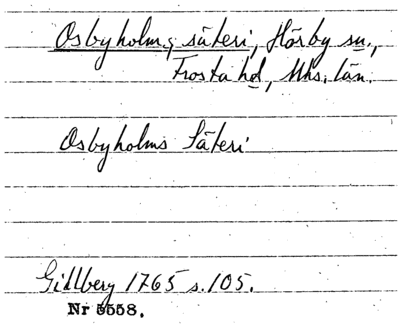 Osbyholms säteri, Hörby sn.,
Frosta hd, Mhs. län.
Osbyholms Säteri
Gillberg 1765 s. 105.
Nr 5558.